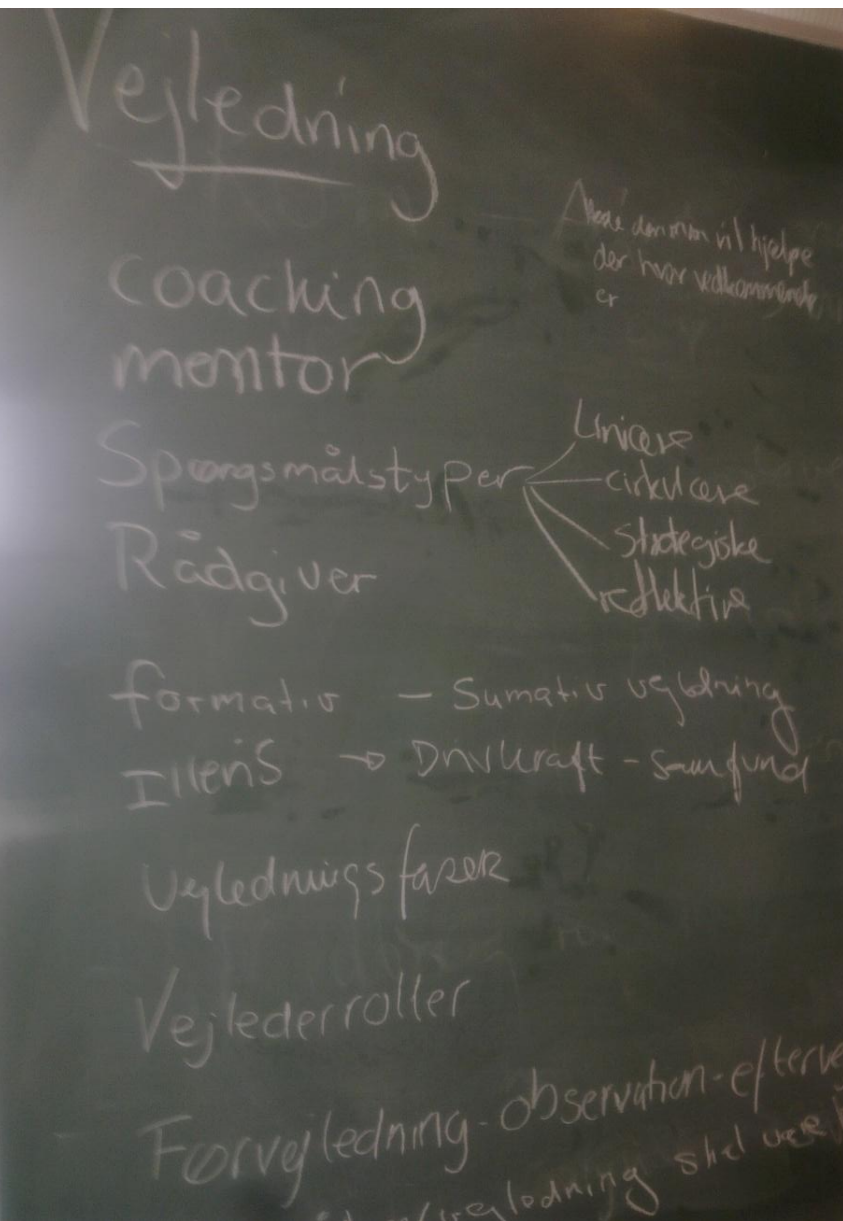 Vejledning
Møde den man vil hjelpe
der hvor vedkommende
er
coaching
mentor
Spøorgsmålstyper
Liniære
cirkulære
strategiske
reflektive
Rådgiver
formativ - Sumativ vejledning
Illeris → Drivkraft - samfund
Vejledningsfaser
Vejlederroller
Førvejledning - observation - efterve
vejledning skal være